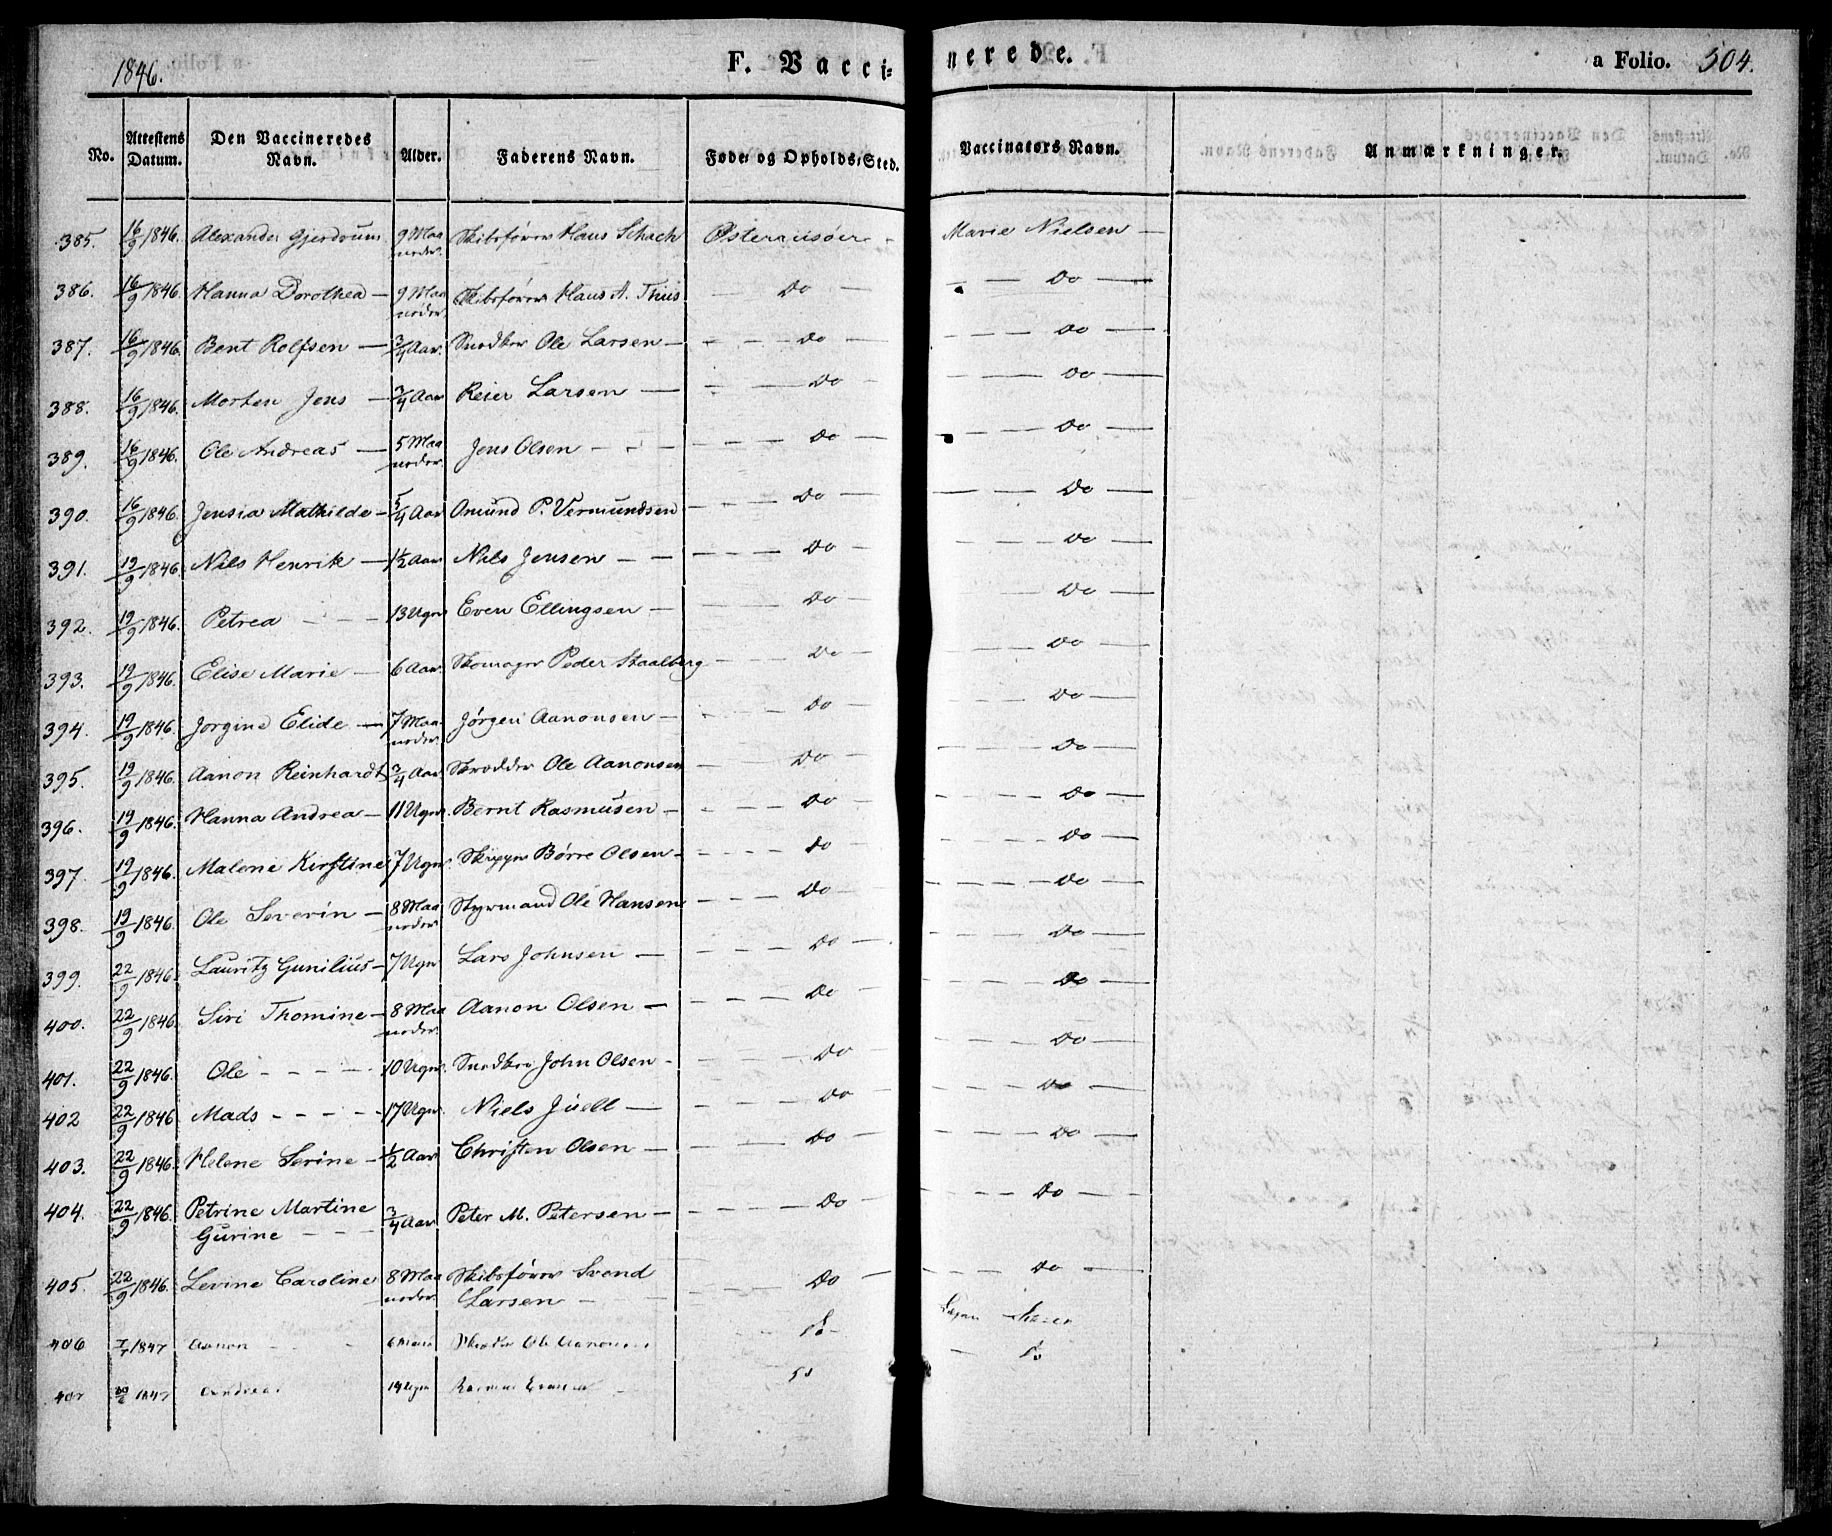 1846. F. Vaccinerede. a Folio. 504.
No. Attestens Datum. Den Vaccineredes Navn. Alder. Faderens Navn. Føde- og Opholds-Sted. Vaccinators Navn. Anmærkninger.
385. 16/9 1846. Alexander Gjerdrum 9 Maanoder. Skibsfører Hans Schach Østerriisøer - Marie Nielsen —
386. 16/9 1846. Hanna Dorothea — 9 Maanoder. Skibsfører Hans A. Thiis — Do — — Do —
387. 16/9 1846. Bent Rolfsen — 3/4 Aar. Snedker Ole Larsen — — Do — — Do —
388. 16/9 1846. Morten Jens — 3/4 Aar Reier Larsen — — Do — — Do —
389. 16/9 1846. Ole Andreas — 5 Maanoder. Jens Olsen — — Do — — Do —
390. 16/9 1846. Jensia Mathilde — 5/4 Aar Omund P. Vermundsen — Do — — Do —
391. 19/9 1846. Nils Henrik — 1 1/2 Aar Nils Jensen — — Do — — Do —
392. 19/9 1846. Petrea — — 13 Uger Even Ellingsen — — Do — — Do —
393. 19/9 1846. Elise Marie — 6 Aar. Skomager Peder Staalberg — Do — Do —
394. 19/9 1846. Jorgine Elide — 7 Maanoder. Jørgen Aanonsen — — Do — Do —
395. 19/9 1846. Aanon Reinhardt 3/4 Aar Skrædder Ole Aanonsen — Do — — Do —
396. 19/9 1846. Hanna Andrea — 11 Uger. Bernt Rasmusen — — Do — Do —
397. 19/9 1846. Malene Kirstine 7 Uger. Skipper Børre Olsen — — Do — — Do —
398. 19/9 1846. Ole Severin — 8 Maanoder Styrmand Ole Hansen — Do — — Do —
399. 22/9 1846. Lauritz Gunilius — 7 Uger Lars Johnsen — — Do — — Do —
400. 22/9 1846. Siri Thomine — 8 Maanoder. Aanon Olsen — — Do — — Do —
401. 22/9 1846. Ole — — — 10 Uger. Snedker John Olsen — — Do — Do —
402 22/9 1846 Mads — — — 17 Uger Niels Juell — — Do — Do —
403. 22/9 1846. Helene Serine — 1/2 Aar Christen Olsen — — Do — Do —
404. 22/9 1846. Petrine Martine Gurine — — 3/4 Aar Peter M. Petersen — — Do — Do —
405. 22/9 1846. Levine Caroline 8 Maanoder Skibsfører Svend Larsen — — Do — — Do —
406 1847 Aanon Ole Aanonsen Do Do
407 1847 Andrea 14 Uger